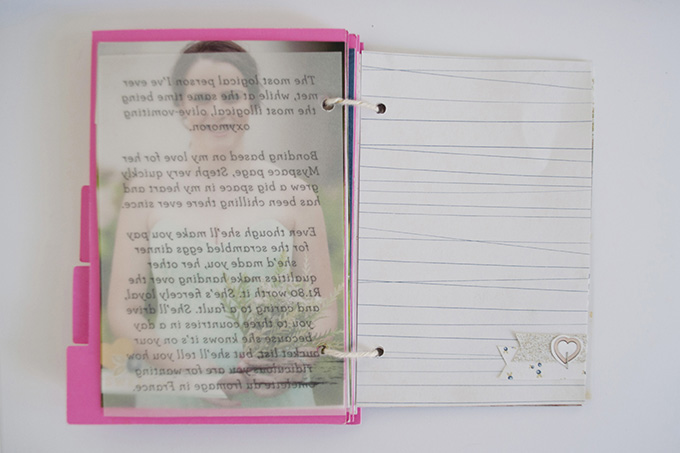 The most logical person I've ever
met, while at the same time being
the most illogical, olive-vomiting
oxymoron.
Bonding based on my love for her
Myspace page, Steph very quickly
grew a big space in my heart and
has been chilling there ever since.
Even though she'll make you pay
for the scrambled eggs dinner
she'd made you, her other
qualities make handing over the
R1.80 worth it. She's fiercely loyal,
and caring to a fault. She'll drive
you to three countries in a day
because she knows it's on your
bucket list, but she'll tell you how
ridiculous you are for wanting
Omelette du fromage in France.